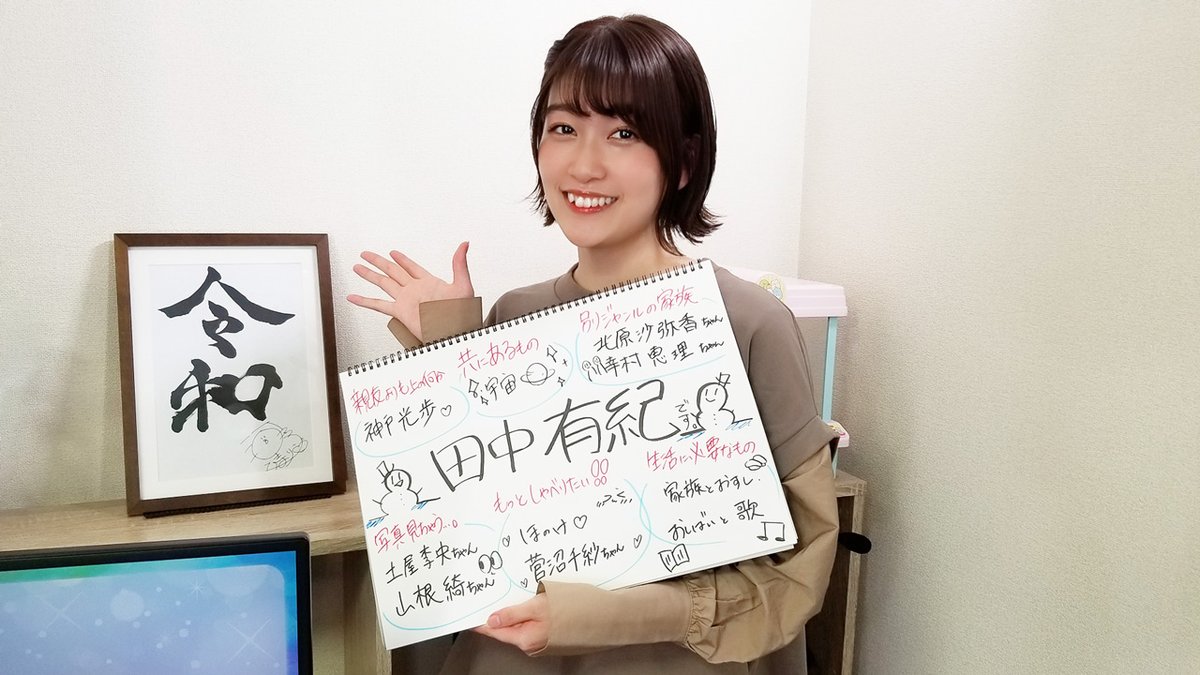 令和
別ジャンルの家族
北原沙弥香ちゃん
幸村恵理ちゃん
共にあるもの
宇宙
親友よりも上の何か
神戸光歩♡
田中有紀です。
生活に必要なもの
家族とおすし
おしばいと歌
もっとしゃべりたい!!
ほのけ♡
菅沼千紗ちゃん
写真見ちゃう…。
土屋李央ちゃん
山根綺ちゃん